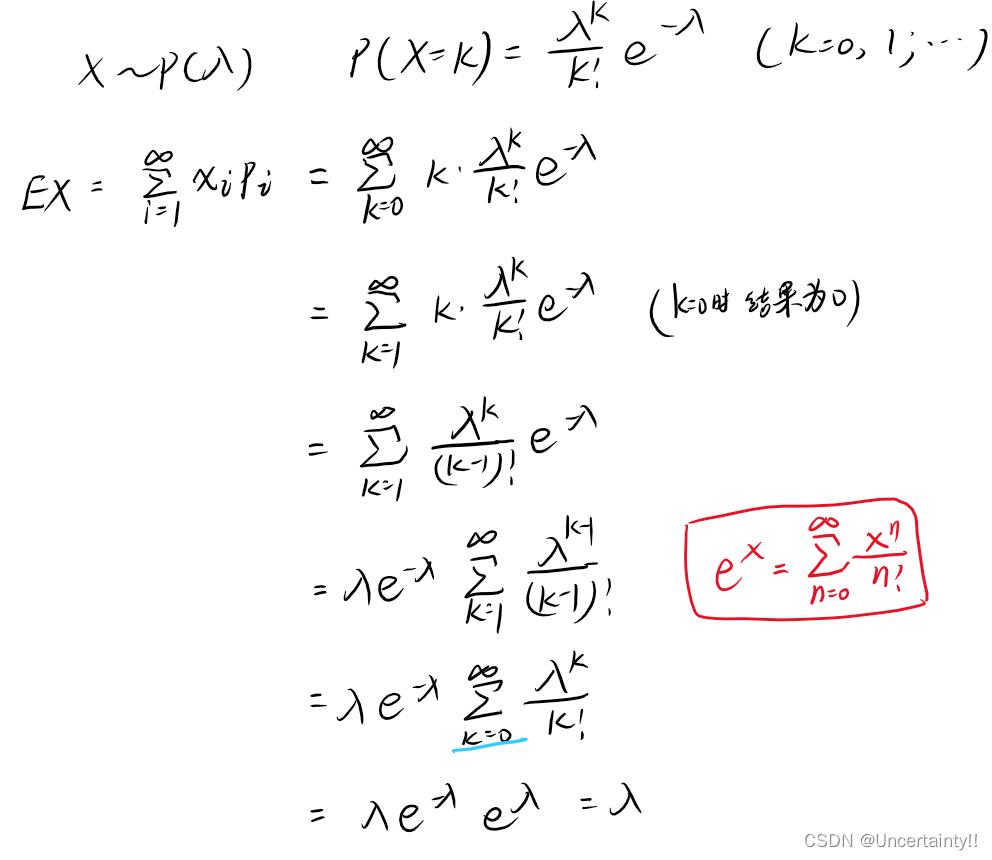 X ~ P(λ) P(X=k) = λ^k/k! e^{-λ} (k=0, 1, ⋯)
EX = ∑_{i=1}^{∞} x_i p_i = ∑_{k=0}^{∞} k · λ^k/k! e^{-λ}
= ∑_{k=1}^{∞} k · λ^k/k! e^{-λ} (k=0时 结果为0)
= ∑_{k=1}^{∞} λ^k/(k-1)! e^{-λ}
= λe^{-λ} ∑_{k=1}^{∞} λ^{k-1}/(k-1)! e^x = ∑_{n=0}^{∞} x^n/n!
= λe^{-λ} ∑_{k=0}^{∞} λ^k/k!
= λe^{-λ} e^λ = λ
CSDN @Uncertainty!!